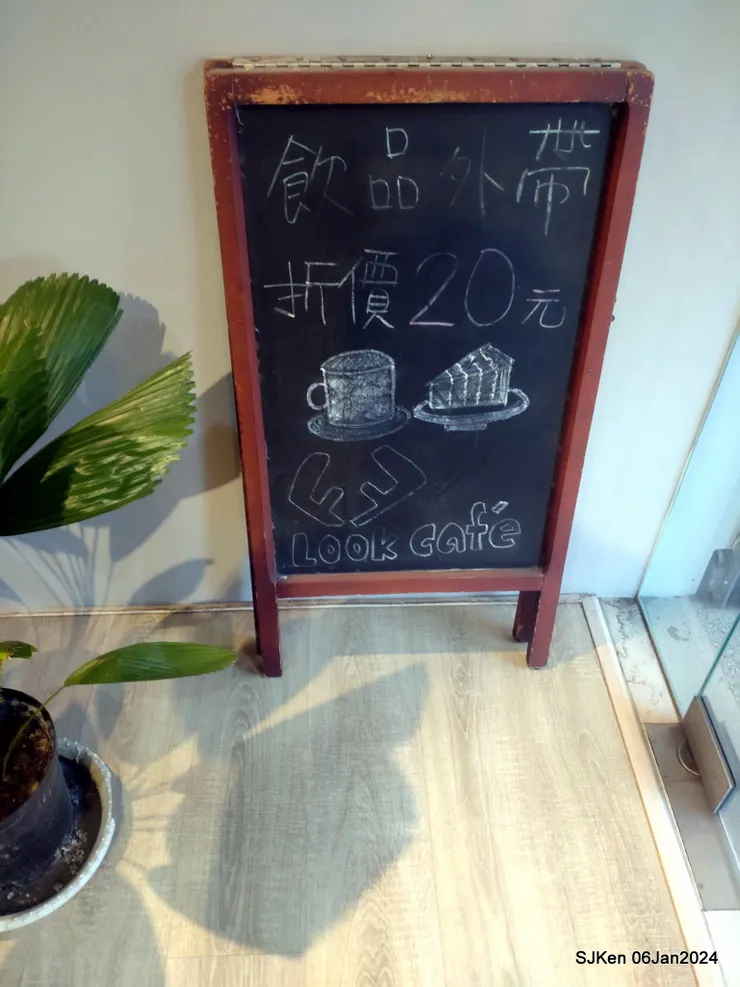 飲品外帶
折價20元
Look café
SJKen 06Jan2024